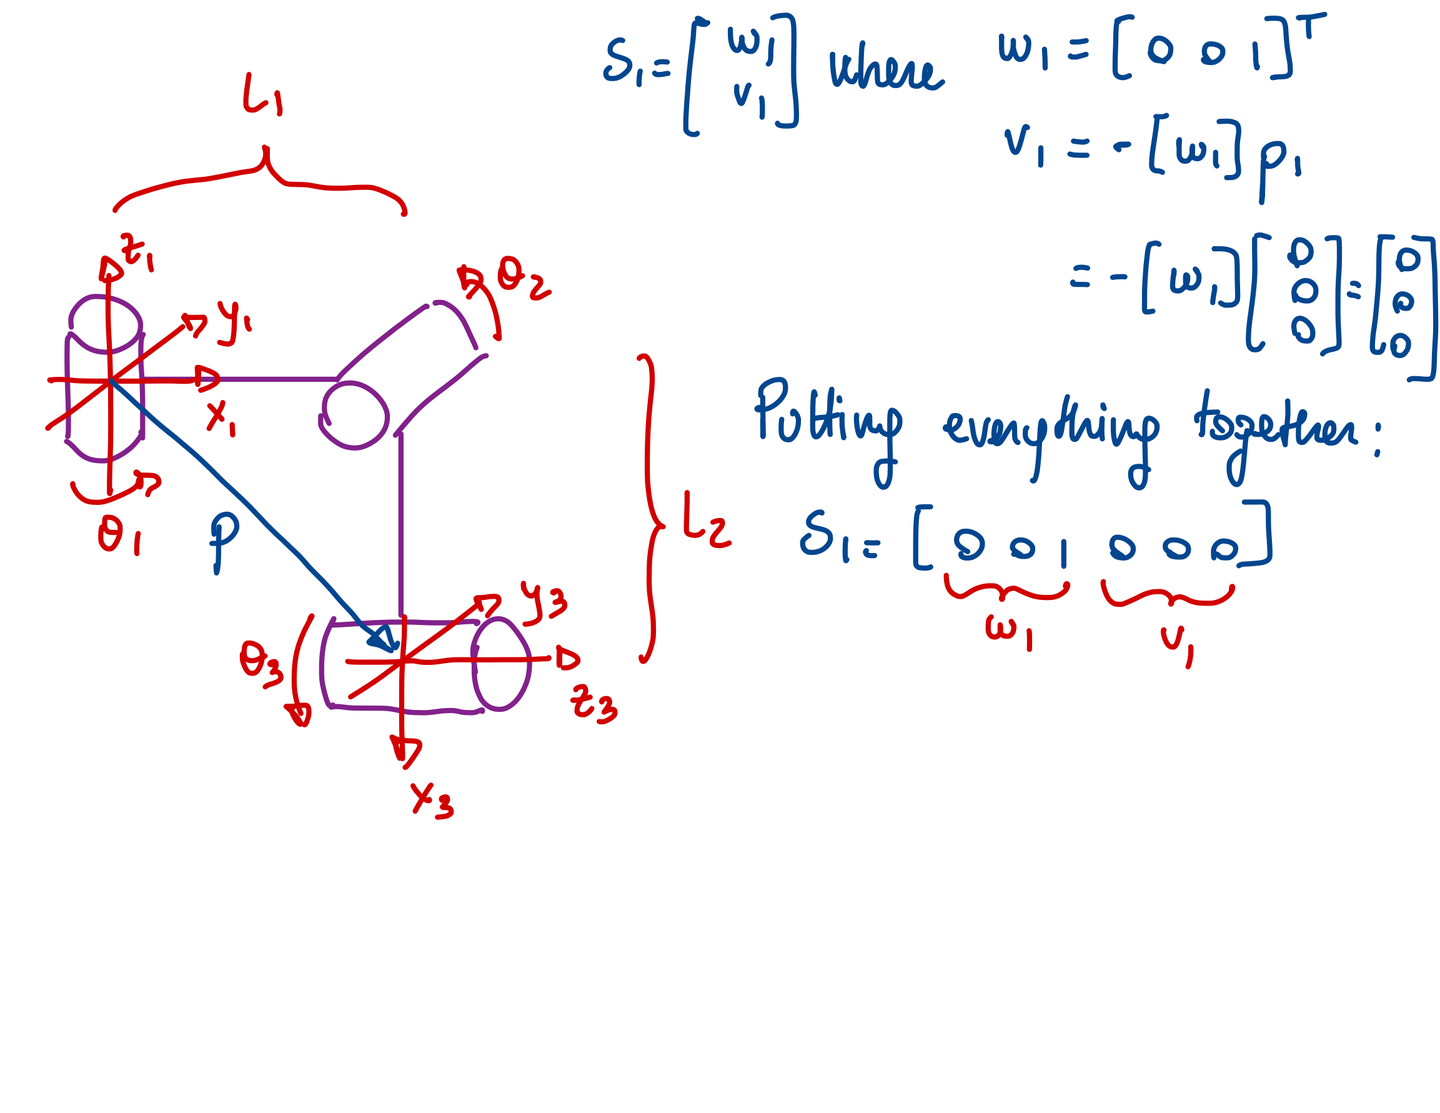 L₁
z₁
y₁
x₁
θ₁
θ₂
p
L₂
θ₃
y₃
z₃
x₃
S₁ = [ w₁ v₁ ] where w₁ = [ 0 0 1 ]ᵀ
v₁ = - [w₁] p₁
= - [w₁] [ 0 0 0 ] = [ 0 0 0 ]
Putting everything together:
S₁ = [ 0 0 1 0 0 0 ]
w₁ v₁